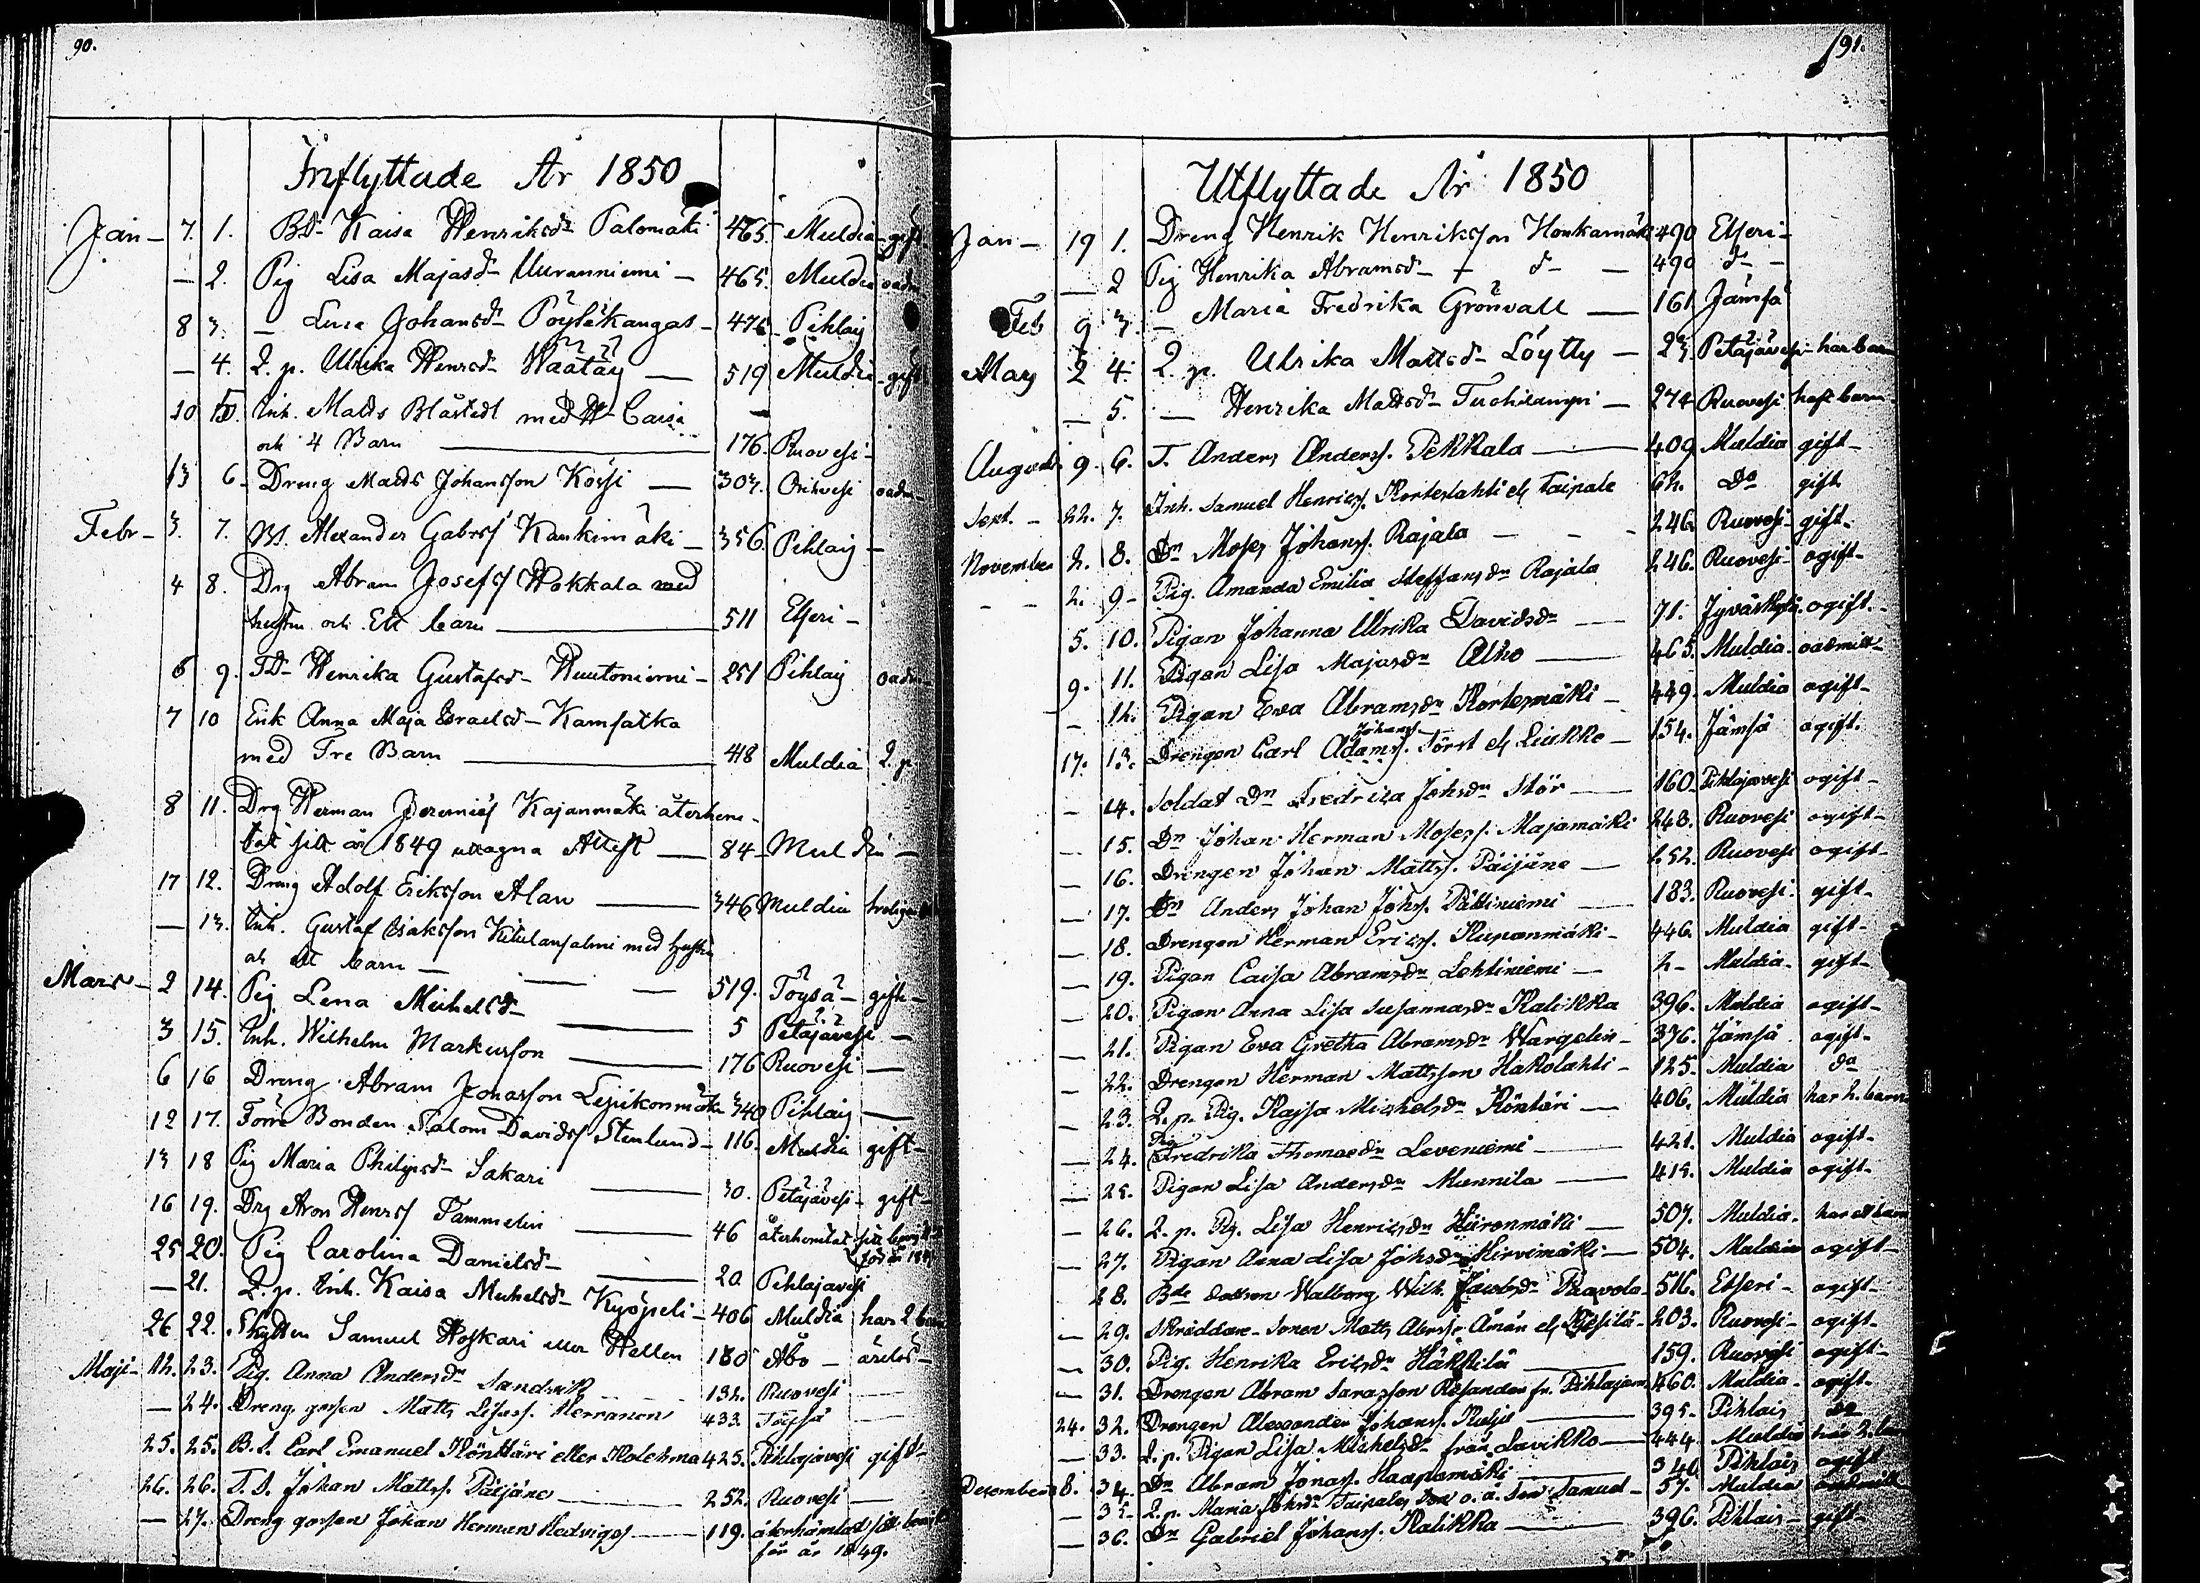 90.
Inflyttade År 1850
Jan - 7. 1. Bd Kaisa Henriksdr Palomäki 465. Muldia - gift
- 2. Pig Lisa Majasd - Uuranniemi - 465. Muldia oadm
8 3. - Lena Johansd - Pöylikangas - 476 - Pihlaj
- 4. 2. p. Ulrika Henrsd - Wäätäy - 519 Muldia - gift
10 5. Inh. Matts Blåstedt med H Caisa
och 4 Barn 176. Ruovesi -
13 6. Dreng Matts Johansson Kossi - 303. Orihvesi oadm
Febr - 3. 7. Bs. Alexander Gabrss Kaukimäki - 356. Pihlaj -
4 8. Drg Abram Josefss Hokkala med
hustru och Ett barn 511 Etseri -
6 9. TD - Henrika Gustafsd - Huutoniemi - 251 Pihlaj oadm
7 10 Enk Anna Maja Israelsd - Kamsatka
med Tre Barn 418 Muldia 2. p
8 11. Drg Herman Jeremiess Kajanmäki återhem-
tat sitt år 1849 uttagna Attest - 84 - Muldia -
17 12. Dreng Adolf Eriksson Alan 346 Muldia
- 13. Inh. Gustaf Isaksson Kitulansalmi med hustru
och ett barn - 519. Töysä - gift -
Mars - 2 14. Pig Lena Michelsd - 5 Petäjävesi -
3 15. Inh. Wilhelm Markusson 176 Ruovesi -
6 16 Dreng Abram Jonasson Lepikonmäki 340 Pihlaj -
12 17. Torre Bonden Salom Davidss Stenlund - 116. Muldia gift -
13 18 Pig Maria Philipsd - Sakari 30. Petäjävesi - gift -
16 19. Drg Aron Henrss Tammelin 46 återhemtat sitt
25 20. Pig Carolina Danielsd - 20 Pihlajavesi
- 21. 2. p. Inh. Kaisa Michelsd - Kyöpeli - 406 Muldia har 2 barn
26 22. Skytten Samuel Hoskari eller Hellen 180 Åbo -
Maji - 12. 23. Pig. Anna Andersdr Sandvik 132. Ruovesi
- 24. Dreng gossen Matts Lisass. Herranen 433. Töysä
25. 25. B. S. Carl Emanuel Könttäri eller Kolehma 425. Pihlajavesi gift -
26. 26. T. S. Johan Mattss. Päijäne 252. Ruovesi
- 27. Dreng gossen Johan Herman Hedvigss 119. återhämtat sitt
för år 1849.
91.
Utflyttade År 1850
Jan - 19 1. Dreng Henrik Henriksson Honkamäki 490 Etseri -
- 2 Pig Henrika Abramsd - d - 490 d -
Feb 9 3. - Maria Fredrika Grönvall 161. Jämsä
Mars 2 4. 2. p. Ulrika Mattsd - Löytty - 23. Petäjävesi - har barn
- 5. - Henrika Mattsd - Tuohilampi - 274 Ruovesi haft barn
Augusti 9. 6. T. Anders Anderss. Pekkala 409. Muldia gift -
Sept. - 22. 7. Inh. Samuel Henricss. Kortelahti elr Taipale 62. Do gift
November 2. 8. Dn Moses Johanss. Rajala - 246. Ruovesi - gift -
- - 2. 9 - Pig. Amanda Emilia Steffansdr Rajala 246. Ruovesi - ogift -
5. 10. Pigan Johanna Ulrika Davidsdr 71. Jyväskylä. ogift.
9. 11. Pigan Lisa Majasdr Alho 465. Muldia. oadmitt -
- 12. Pigan Eva Abramsdr Kortesmäki - 449. Muldia ogift -
Johanss
17. 13. Drengen Carl Adamss. Törst elr Liukko - 154. Jämsä ogift.
- 14. Soldat Dr Fredrica Johsdr Stör 160. Pihlajavesi ogift -
- 15. Dn Johan Herman Mosess. Majamäki 248. Ruovesi ogift -
- 16. Drengen Johan Mattss. Päijäne 252. Ruovesi ogift -
- 17. Dn Anders Johan Johss. Pättiniemi 183. Ruovesi. gift -
- 18. Drengen Herman Ericss. Kuparinmäki - 446. Muldia gift -
- 19. Pigan Caisa Abramsdr Lehtiniemi - 2 - Muldia - gift -
- 20. Pigan Anna Lisa Susannasdr Kalikka 396. Muldia ogift -
- 21. Pigan Eva Gretha Abramsdr Wargelin - 376. Jämsä ogift -
- 22. Drengen Herman Mattsson Hakolahti - 125. Muldia do
- 23. 2. p. Pig. Kajsa Michelsdr Köntäri 406. Muldia har 2. barn
- 24. Pig. Fredrika Thomasdr Leveniemi 421. Muldia ogift -
- 25. Pigan Lisa Andersdr Munnila 415. Muldia ogift -
- 26. 2. p. Pig. Lisa Henricsdr Hiironmäki 507. Muldia. har ett barn
- 27. Pigan Anna Lisa Johsdr Hirvimäki 504. Muldia ogift -
28. Bde dottren Walborg Wilh. Jacobsdr Pravola 516. Etseri - ogift -
- 29. Skräddare - sonen Matts Abrss. Åman elr - 203. Ruovesi - ogift -
- 30. Pig. Henrika Ericsdr Häkkilä 159. Ruovesi ogift -
- 31. Drengen Abram Sarasson Rosander fr. Pihlajam 460. Muldia - ogift -
24. 32. Drengen Alexander Johanss. 395. Pihlais do
- 33. 2. p. Pigan Lisa Michelsdr från Lavikko 444. Muldia har 2. barn
December 8. 34. Dn Abram Jonass. Haapamäki 340. Pihlais ogift
- 35. 2. p. Maria Johsdr Taipale, Son Samuel - 57. Muldia oadmitt
- 36. Dn Gabriel Johanss. Kalikka 396. Pihlais - gift -